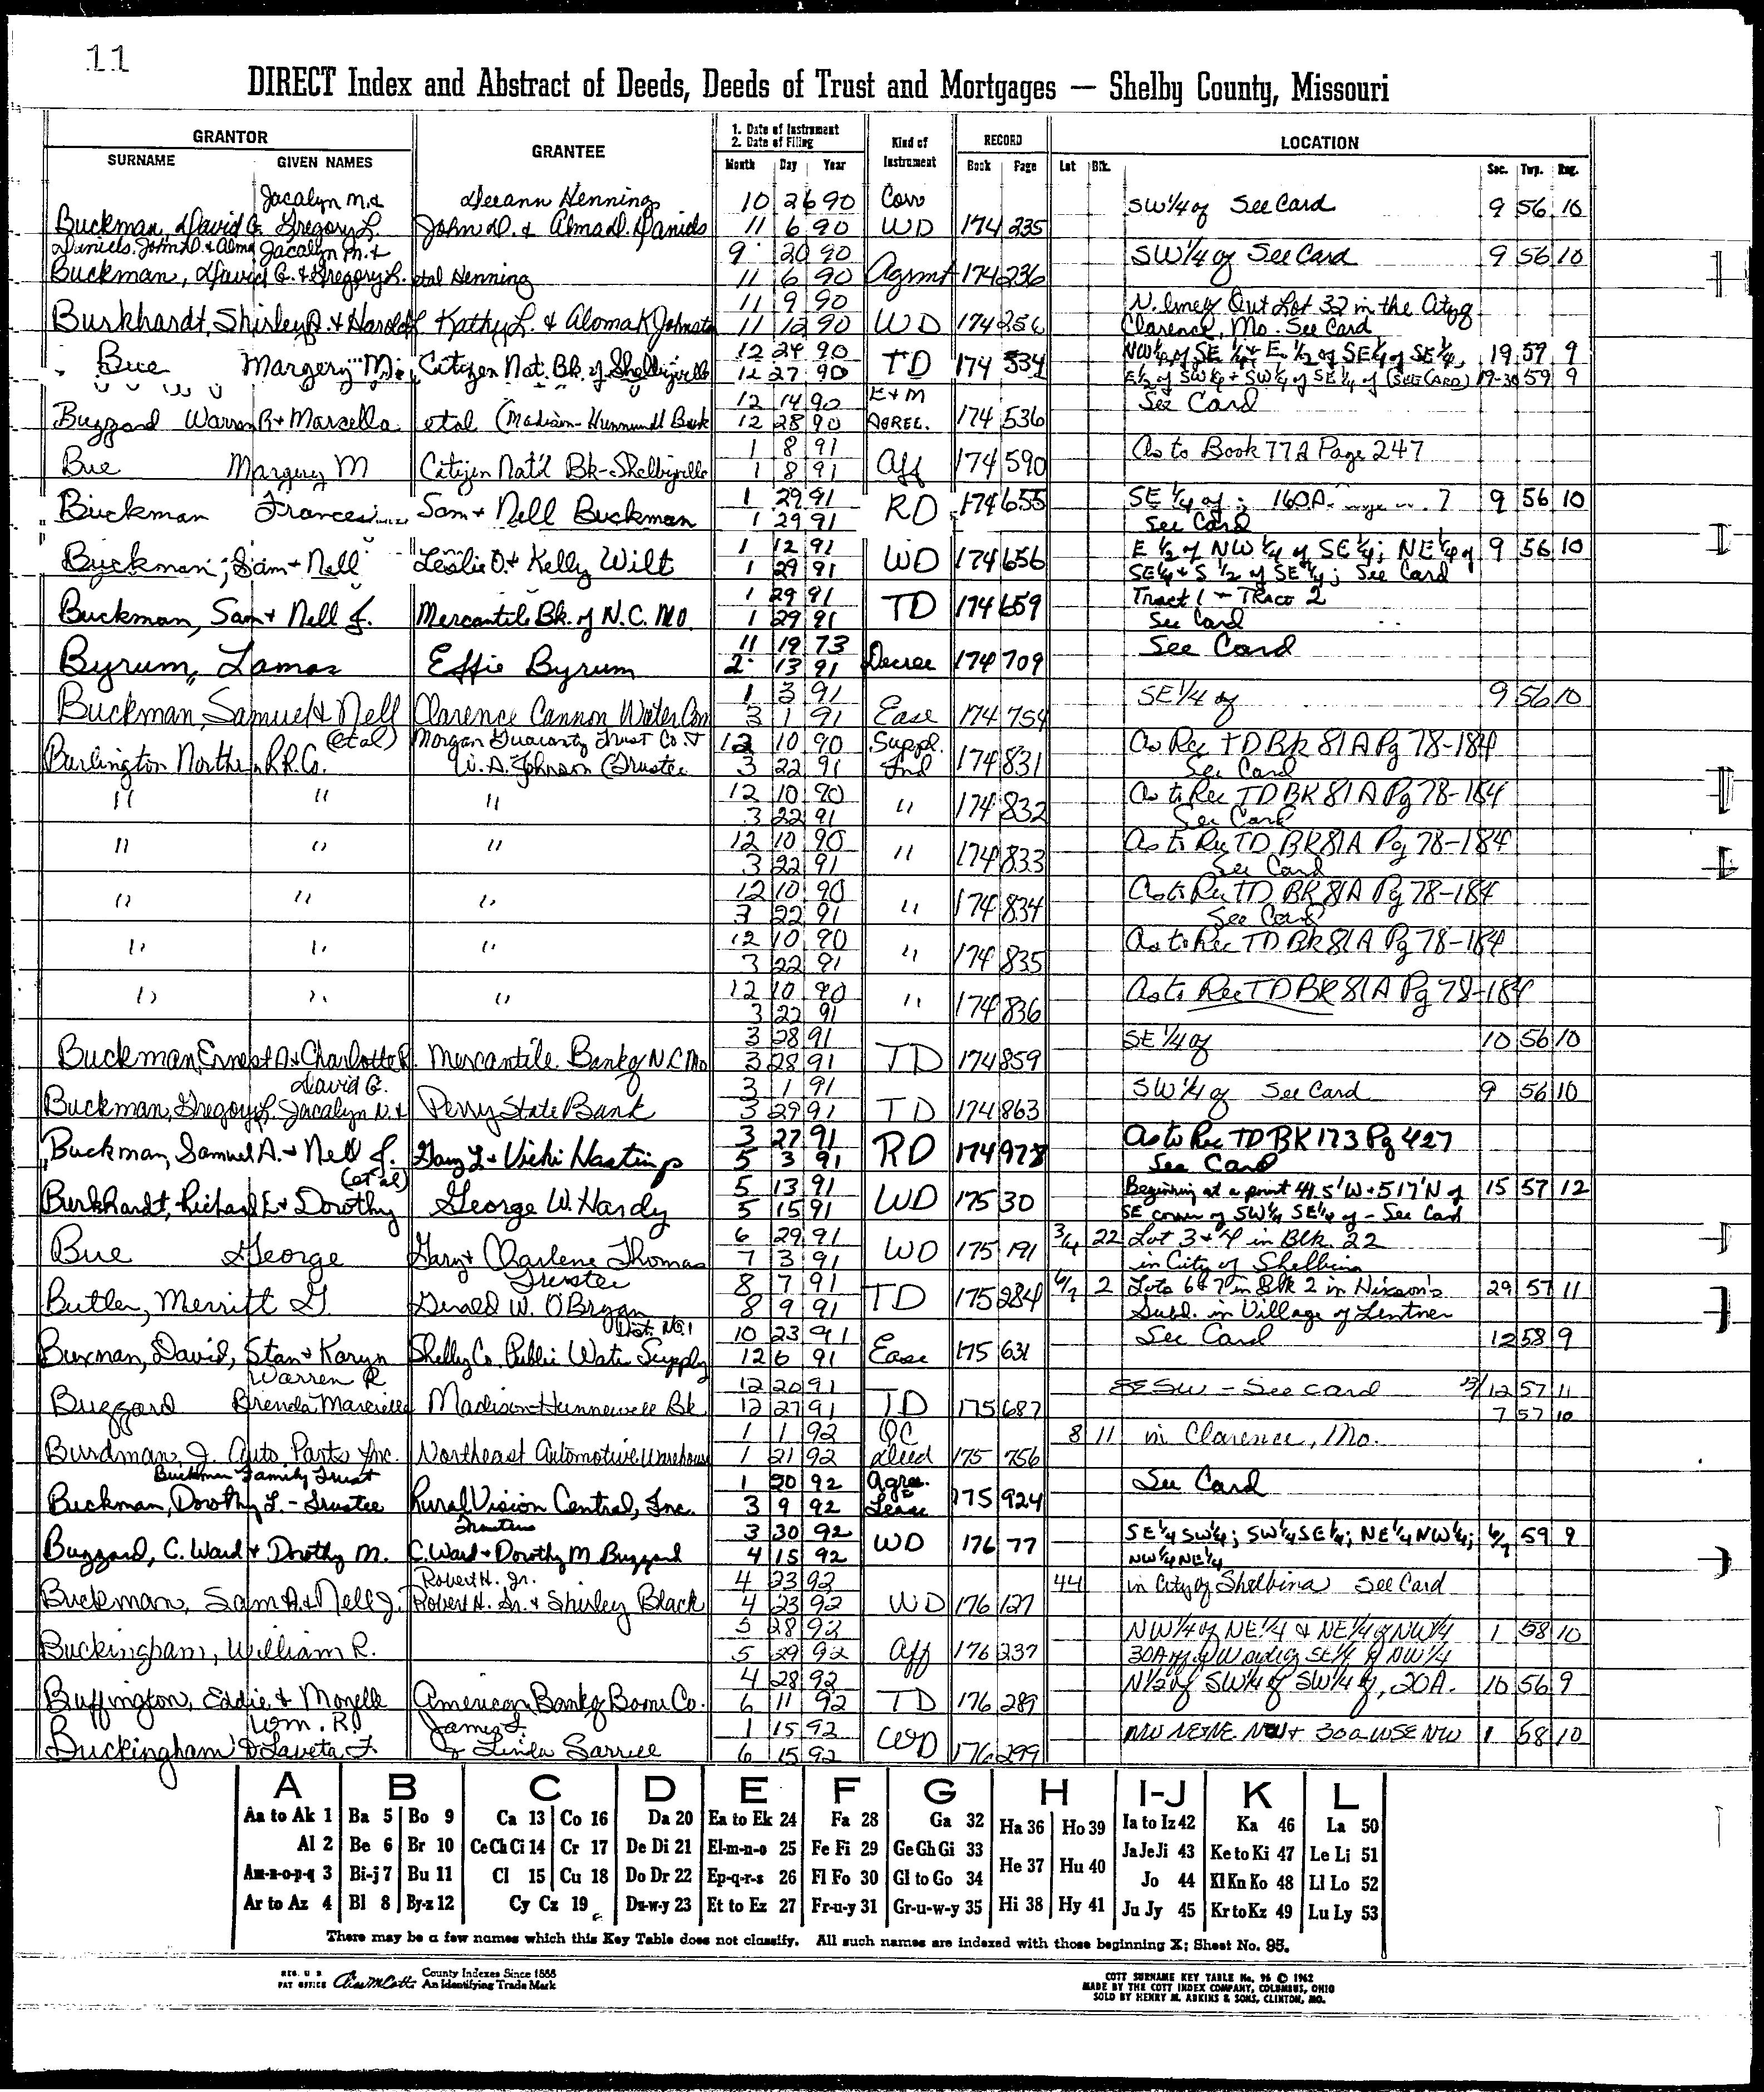 11
DIRECT Index and Abstract of Deeds, Deeds of Trust and Mortgages — Shelby County, Missouri
GRANTOR GRANTEE 1. Date of Instrument 2. Date of Filing Kind of Instrument RECORD LOCATION
SURNAME GIVEN NAMES Month Day Year Book Page Lot Blk. Sec. Twp. Rng.
Jacalyn M. & Deeann Henning 10 26 90 Corr SW 1/4 of See Card 9 56 10
Buckman, David G. Gregory L. John D. & Alma D. Daniels 11 6 90 WD 174 235
Daniels, John D. & Alma Jacalyn M. & 9 20 90 SW 1/4 of See Card 9 56 10
Buckman, David G. & Gregory L. etal Henning 11 6 90 Agrmt 174 236
11 9 90 N. line of Out Lot 32 in the City of
Burkhardt, Shirley A. & Harold L Kathy L. & Aloma K Johnston 11 13 90 WD 174 256 Clarence, Mo. See Card
12 24 90 NW 1/4 of SE 1/4 & E. 1/2 of SE 1/4 of SE 1/4, 19 59 9
Bue Margery M. Citizen Nat. Bk. of Shelbyville 12 27 90 TD 174 534 E 1/2 of SW 1/4 + SW 1/4 of SE 1/4 of (SEE CARD) 19-30 59 9
12 14 90 E + M See Card
Buzzard Warren R + Marcella etal (Madison-Hunnewell Bank 12 28 90 AGREE. 174 536
1 8 91 As to Book 77A Page 247
Bue Margery M Citizen Nat'l Bk-Shelbyville 1 8 91 Aff 174 590
1 29 91 SE 1/4 of; 160A. 9 56 10
Buckman Frances Sam + Nell Buckman 1 29 91 RD 174 655 See Card
1 12 91 E 1/2 of NW 1/4 of SE 1/4; NE 1/4 of 9 56 10
Buckman, Sam + Nell Leslie O. + Kelly Wilt 1 29 91 WD 174 656 SE 1/4 + S 1/2 of SE 1/4; See Card
1 29 91 Tract 1 - Tract 2
Buckman, Sam + Nell J. Mercantile Bk. of N.C. MO. 1 29 91 TD 174 659 See Card
11 19 73 See Card
Byrum, Lamas Effie Byrum 2 13 91 Decree 174 709
1 3 91 SE 1/4 of 9 56 10
Buckman, Samuel & Nell Clarence Cannon Water Com 3 1 91 Ease 174 754
(et al) Morgan Guaranty Trust Co. & 12 10 90 Suppl. As Rec TD Bk 81A Pg 78-184
Burlington Northern R.R. Co. W. A. Johnson (Trustee 3 22 91 Ind 174 831 See Card
" " " 12 10 90 " As to Rec TD BK 81A Pg 78-184
3 22 91 174 832 See Card
" " " 12 10 90 " As to Rec TD BK 81A Pg 78-184
3 22 91 174 833 See Card
" " " 12 10 90 " As to Rec TD BK 81A Pg 78-184
3 22 91 174 834 See Card
" " " 12 10 90 " As to Rec TD Bk 81A Pg 78-184
3 22 91 174 835
" " " 12 10 90 " As to Rec TD BK 81A Pg 78-184
3 22 91 174 836
3 28 91 SE 1/4 of 10 56 10
Buckman, Ernest A. & Charlotte R. Mercantile Bank of N.C. Mo 3 28 91 TD 174 859
David G. 3 1 91 SW 1/4 of See Card 9 56 10
Buckman, Gregory L. Jacalyn N. & Perry State Bank 3 29 91 TD 174 863
3 27 91 As to Rec TD BK 173 Pg 427
Buckman, Samuel A. + Nell J. Gary L + Vicki Hastings 5 3 91 RD 174 978 See Card
(et al) 5 13 91 Beginning at a point 44.5' W + 517' N of 15 57 12
Burkhardt, Richard E + Dorothy George W. Hardy 5 15 91 WD 175 30 SE corner of SW 1/4 SE 1/4 of - See Card
6 29 91 3/4 22 Lot 3 + 4 in Blk. 22
Bue George Gary + Charlene Thomas 7 3 91 WD 175 191 in City of Shelbina
Trustee 8 7 91 6/7 2 Lots 6 & 7 in Blk 2 in Nixson's 29 57 11
Butler, Merritt G. Gerald W. O'Bryan 8 9 91 TD 175 284 Subd. in Village of Lentner
Dist. No. 1 10 23 91 See Card 12 58 9
Buxman, David, Stan + Karyn Shelby Co. Public Water Supply 12 6 91 Ease 175 631
Warren R 12 20 91 SE SW - See card 13/12 57 11
Buzzard Brenda Marcella Madison-Hunnewell Bk 12 27 91 TD 175 687 7 57 10
1 1 92 QC 8 11 in Clarence, Mo.
Burdman, J. Auto Parts Inc. Northeast Automotive Warehouse 1 21 92 Deed 175 756
Buckman Family Trust 1 20 92 Agree. See Card
Buckman, Dorothy L. - Trustee Rural Vision Central, Inc. 3 9 92 Lease 175 924
Trustees 3 30 92 SE 1/4 SW 1/4; SW 1/4 SE 1/4; NE 1/4 NW 1/4; 6/7 59 9
Buzzard, C. Ward + Dorothy M. C. Ward + Dorothy M Buzzard 4 15 92 WD 176 77 NW 1/4 NE 1/4
Robert H. Jr. 4 23 92 44 in City of Shelbina See Card
Buckman, Sam A. & Nell J. Robert H. Sr. & Shirley Black 4 23 92 WD 176 127
5 28 92 NW 1/4 of NE 1/4 & NE 1/4 of NW 1/4 1 58 10
Buckingham, William R. 5 29 92 Aff 176 237 30A off of W side of SE 1/4 of NW 1/4
4 28 92 N 1/2 of SW 1/4 of SW 1/4 of, 20A. 10 56 9
Buffington, Eddie & Mozelle American Bank of Boone Co. 6 11 92 TD 176 289
Wm. R. James L. 1 15 92 NW NE + NE NW + 30a WSE NW 1 58 10
Buckingham & Laveta F. & Linda Sarvee 6 15 92 WD 176 299
A B C D E F G H I-J K L
Aa to Ak 1 Ba 5 Bo 9 Ca 13 Co 16 Da 20 Ea to Ek 24 Fa 28 Ga 32 Ha 36 Ho 39 Ia to Iz 42 Ka 46 La 50
Al 2 Be 6 Br 10 Ce Ch Ci 14 Cr 17 De Di 21 El-m-n-o 25 Fe Fi 29 Ge Gh Gi 33 He 37 Hu 40 Ja Je Ji 43 Ke to Ki 47 Le Li 51
Am-n-o-p-q 3 Bi-j 7 Bu 11 Cl 15 Cu 18 Do Dr 22 Ep-q-r-s 26 Fl Fo 30 Gl to Go 34 Jo 44 Kl Kn Ko 48 Ll Lo 52
Ar to Az 4 Bl 8 By-z 12 Cy Cz 19 Du-w-y 23 Et to Ez 27 Fr-u-y 31 Gr-u-w-y 35 Hi 38 Hy 41 Ju Jy 45 Kr to Kz 49 Lu Ly 53
There may be a few names which this Key Table does not classify. All such names are indexed with those beginning X; Sheet No. 95.
REG. U S PAT OFFICE County Indexes Since 1888 An Identifying Trade Mark
COTT SURNAME KEY TABLE No. 96 © 1962
MADE BY THE COTT INDEX COMPANY, COLUMBUS, OHIO
SOLD BY HENRY M. ADKINS & SONS, CLINTON, MO.